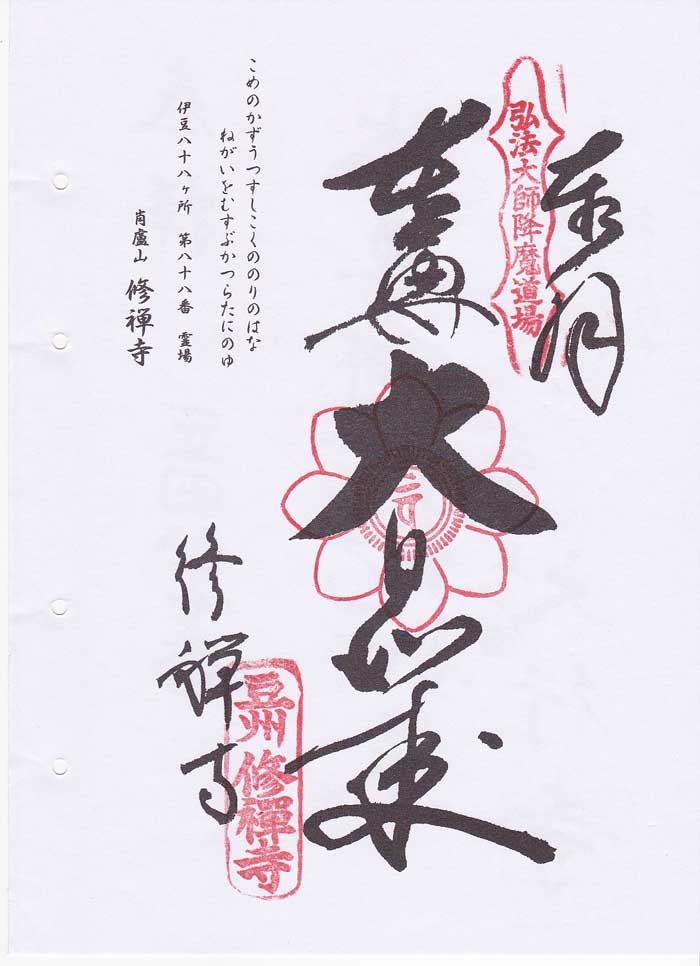 奉拝
弘法大師降魔道場
大日如来
こめのかずうつすしこくののりのはな
ねがいをむすぶかつらたにのゆ
伊豆八十八ヶ所 第八十八番 霊場
肖盧山 修禅寺
修禅寺
豆州 修禅寺